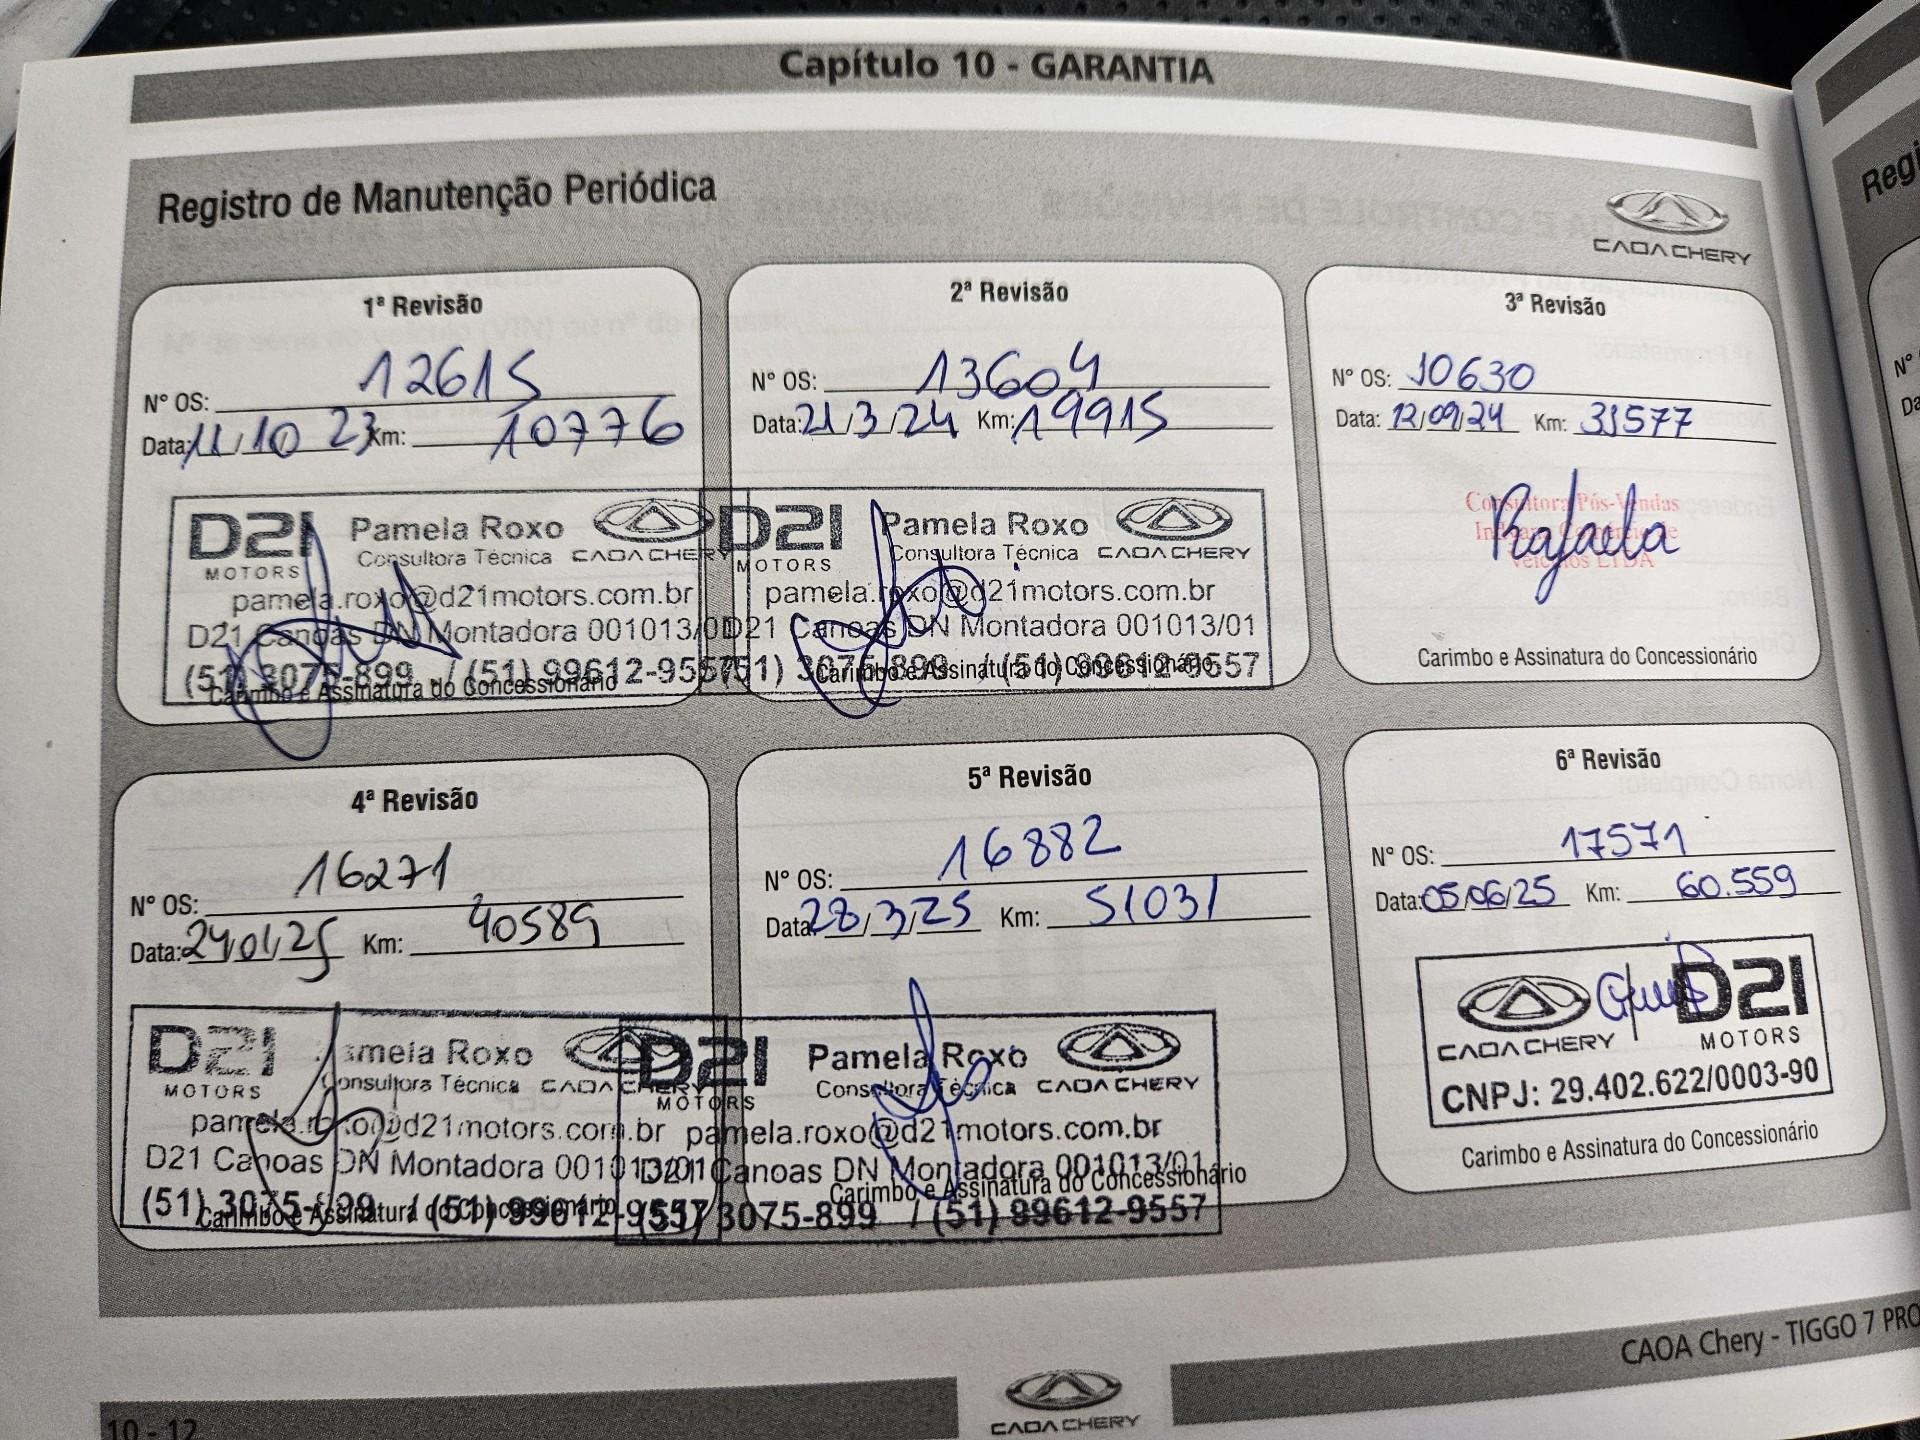 Capítulo 10 - GARANTIA
Registro de Manutenção Periódica
CAOA CHERY
1ª Revisão
N° OS: 12615
Data: 11/10 23 Km: 10776
D21 MOTORS Pamela Roxo
Consultora Técnica CAOA CHERY
pamela.roxo@d21motors.com.br
D21 Canoas DN Montadora 001013/01
(51) 3075-899 / (51) 99612-9557
Carimbo e Assinatura do Concessionário
2ª Revisão
N° OS: 13604
Data: 21/3/24 Km: 19915
D21 MOTORS Pamela Roxo
Consultora Técnica CAOA CHERY
pamela.roxo@d21motors.com.br
D21 Canoas DN Montadora 001013/01
(51) 3075-899 / (51) 99612-9557
Carimbo e Assinatura do Concessionário
3ª Revisão
N° OS: 10630
Data: 12/09/24 Km: 31577
Consultora Pós-Vendas
Rafaela
Veículos LTDA
Carimbo e Assinatura do Concessionário
4ª Revisão
N° OS: 16271
Data: 24/01/25 Km: 40589
D21 MOTORS Pamela Roxo
Consultora Técnica CAOA CHERY
pamela.roxo@d21motors.com.br
D21 Canoas DN Montadora 001013/01
(51) 3075-899 / (51) 99612-9557
Carimbo e Assinatura do Concessionário
5ª Revisão
N° OS: 16882
Data: 28/3/25 Km: 51031
D21 MOTORS Pamela Roxo
Consultora Técnica CAOA CHERY
pamela.roxo@d21motors.com.br
D21 Canoas DN Montadora 001013/01
(51) 3075-899 / (51) 99612-9557
Carimbo e Assinatura do Concessionário
6ª Revisão
N° OS: 17571
Data: 05/06/25 Km: 60.559
CAOA CHERY D21 MOTORS
CNPJ: 29.402.622/0003-90
Carimbo e Assinatura do Concessionário
CAOA Chery - TIGGO 7 PRO
10 - 12
CAOA CHERY